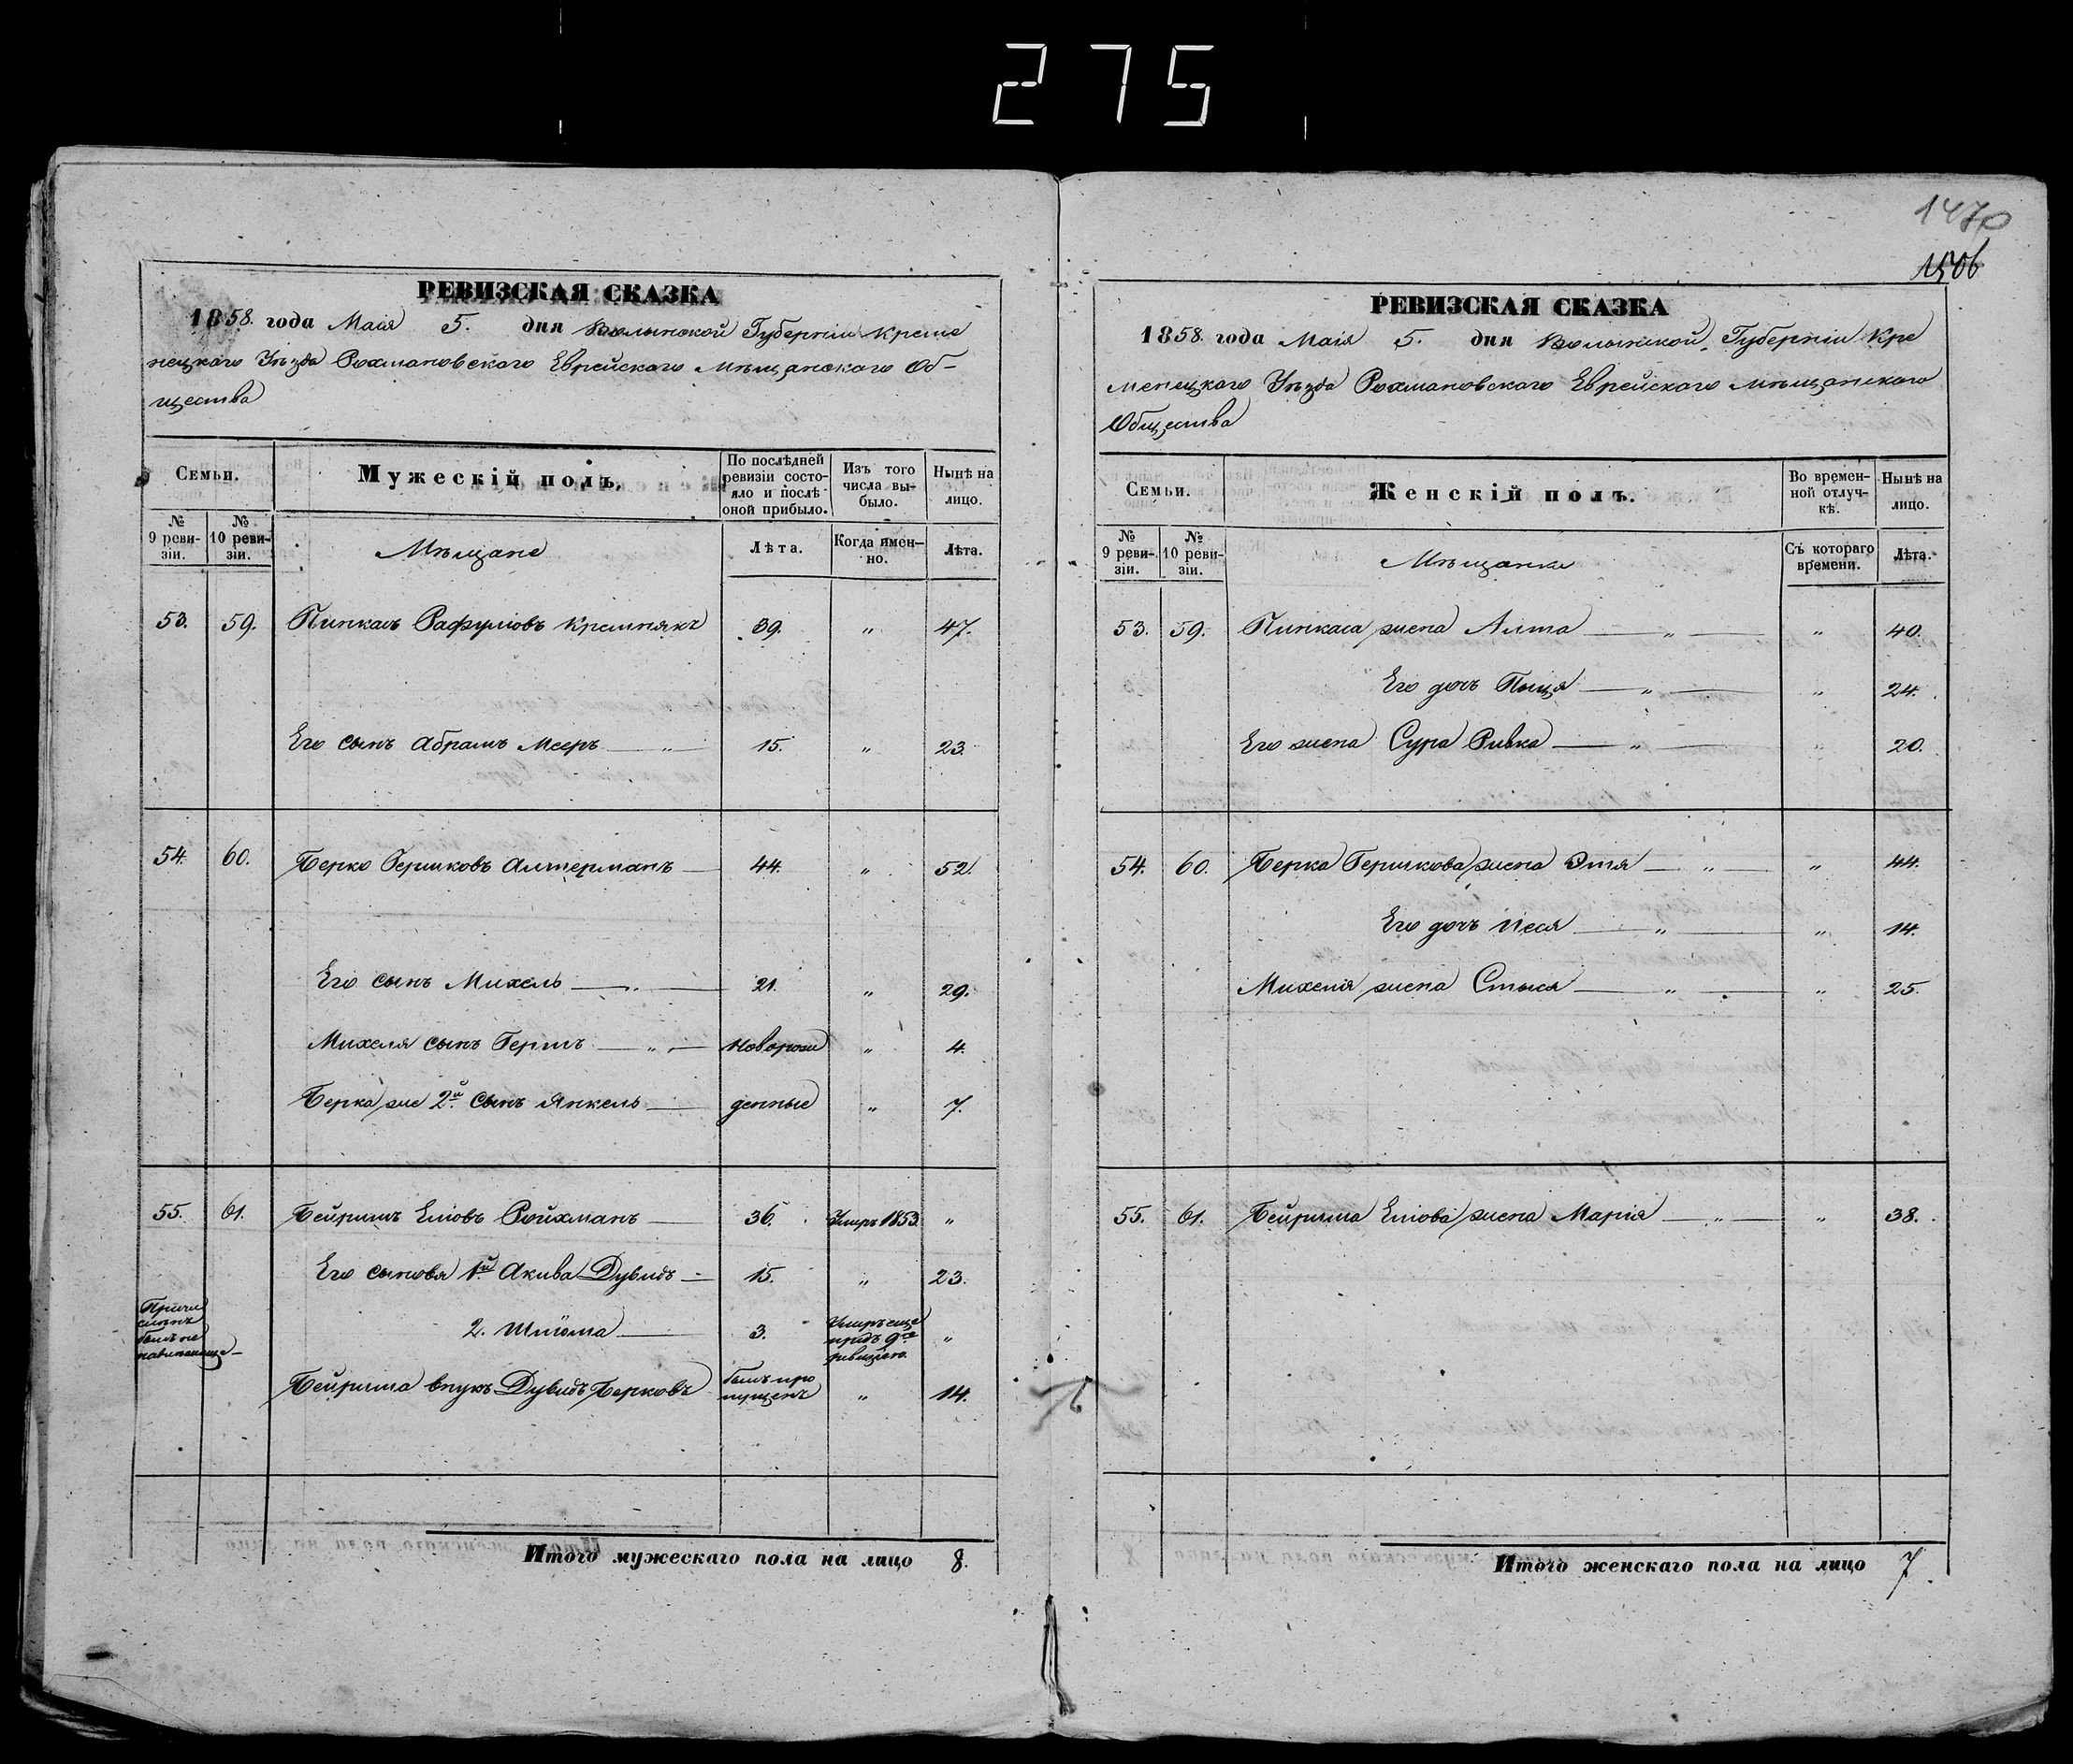 275
1470
1506
РЕВИЗСКАЯ СКАЗКА
1858. года Маія 5. дня Волынской Губерніи Креме
нецкаго Уѣзда Рохмановскаго Еврейскаго Мѣщанскаго Об-
щества
Семьи. Мужескій полъ. По послѣдней ревизіи состояло и послѣ оной прибыло. Изъ того числа выбыло. Нынѣ на лицо.
№ 9 ревизіи. № 10 ревизіи. Мѣщане Лѣта. Когда именно. Лѣта.
53. 59. Пинкасъ Рафуловъ Кремнякъ 39. „ 47.
Его сынъ Абрамъ Мееръ — „ 15. „ 23.
54. 60. Берко Гершковъ Алтерманъ — 44. „ 52.
Его сынъ Михель — „ — 21. „ 29.
Михеля сынъ Гершъ — „ — новорож „ 4.
Берка же 2й. сынъ Янкель — денные „ 7.
55. 61. Бейришъ Еліовъ Ройхманъ — 36. Умеръ 1853. „
Его сыновья 1й Акива Дувидъ — 15. „ 23.
2. Шлома — 3. Умеръ еще предъ 9ю ревизіею. „
Бейриша внукъ Дувидъ Берковъ былъ про пущенъ „ 14.
Итого мужескаго пола на лицо 8.
РЕВИЗСКАЯ СКАЗКА
1858. года Маія 5. дня Волынской Губерніи Кре
менецкаго Уѣзда Рохмановскаго Еврейскаго Мѣщанскаго
Общества
Семьи. Женскій полъ. Во временной отлучкѣ. Нынѣ на лицо.
№ 9 ревизіи. № 10 ревизіи. Мѣщанки Съ котораго времени. Лѣта.
53. 59. Пинкаса жена — „ — „ 40.
Его дочь — „ — „ 24.
Его жена Сура Ривка — „ — „ 20.
54. 60. Берка Гершкова жена Этя — „ — „ 44.
Его дочь Песя — „ — „ 14.
Михеля жена Стыся — „ — „ 25.
55. 61. Бейриша Еліова жена Марія — „ — „ 38.
Итого женскаго пола на лицо 7.